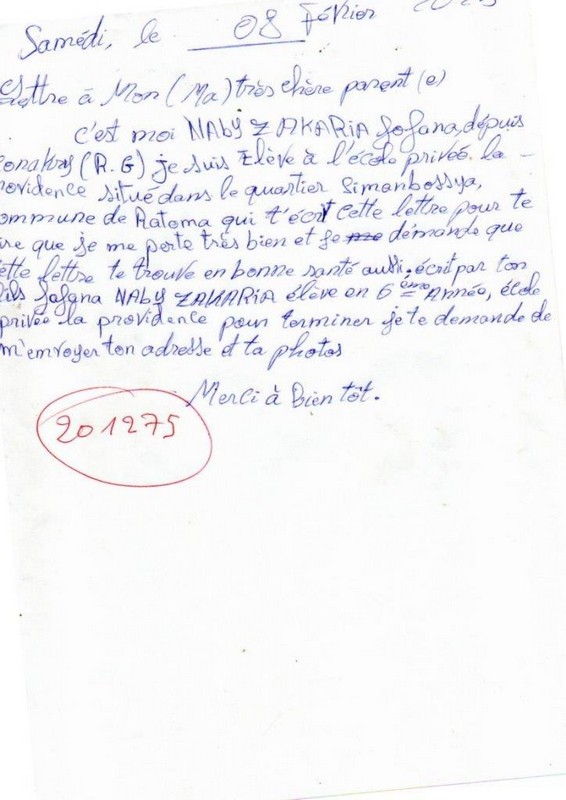 Samédi, le 08 Février
Lettre à Mon (Ma) très chère parent (e)
c'est moi NAby ZAKARiA Fofana, dépuis
conakry (R.G) je suis Elève à l'école privée la -
rovidence situé dans le quartier Simanbossya,
ommune de Ratoma qui t'écrit cette lettre pour te
ire que je me porte très bien et je me démande que
ette lettre te trouve en bonne santé aussi, écrit par ton
fils Fofana NAby ZAKARiA élève en 6 ème Année, école
privée la providence pour terminer je te demande de
m'envoyer ton adresse et ta photos
Merci à Bientôt.
201275